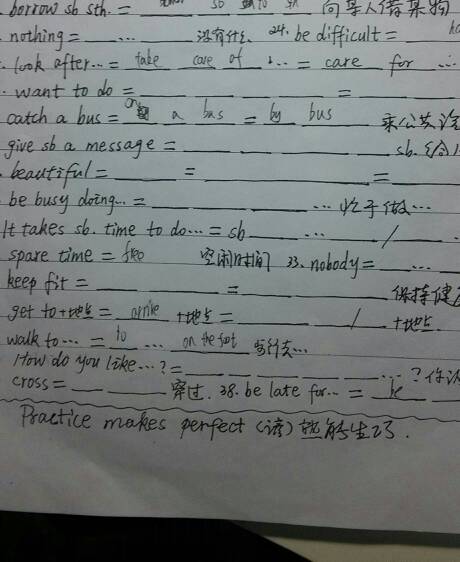 borrow sb sth. = ___ sb ___ to sth 向某人借某物
nothing = ___ ... 没有什么 24. be difficult = ___
look after... = take care of ... = care for ...
want to do = ___ ___ ___ = ___
catch a bus = on a bus = by bus 乘公共汽
give sb a message = ___ ___ ___ ___ sb. 给
beautiful = ___ = ___ = ___
be busy doing... = ___ ___ ___ ... 忙于做...
It takes sb. time to do... = sb ___ ... ___ / ___
spare time = free ___ 空闲时间 33. nobody = ___ ...
keep fit = ___ ___ = ___ ___ 保持健
get to+地点 = arrive +地点 = ___ / ___ +地点
walk to ... = to ... on the foot 步行去...
How do you like...? = ___ ___ ___ ___ ...? 你认
cross = ___ ___ 穿过. 38. be late for... = be ___
Practice makes perfect (谚) 熟能生巧.